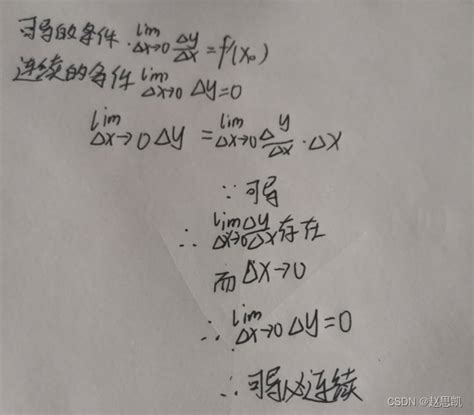 可导的条件 lim Δx→0 Δy/Δx = f'(x₀)
连续的条件 lim Δx→0 Δy=0
lim Δx→0 Δy = lim Δx→0 Δy/Δx · Δx
∵可导
∴ lim Δx→0 Δy/Δx 存在
而 Δx→0
∴ lim Δx→0 Δy=0
∴可导必连续
CSDN @赵思凯